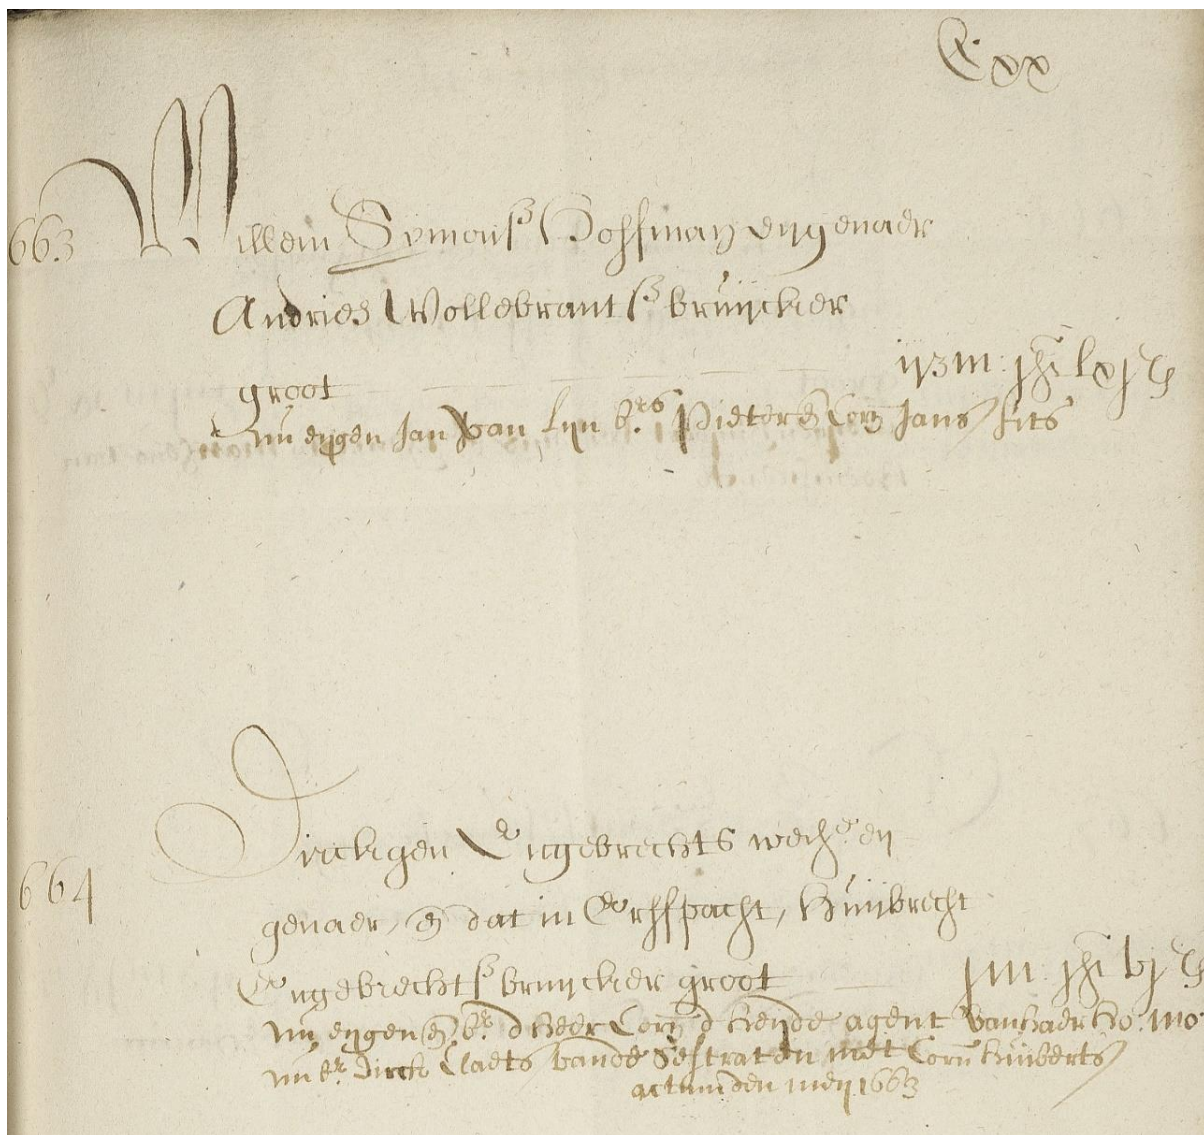 Cxx
663 Willem Symons Hoffman eygenaer
Andries Wollebrants bruycker
groot
nu eygen Jan van Lyn brs Pieter en Corn Jans fits
664 Dirckgen Engebrechts weche ey
genaer, en dat in Erffpacht, Huijbrecht
Engebrechts bruijcker groot
nu eygen en br d heer Corn d heyde agent van haer Ho: mo:
nu br Dirck Claets vande Sestraten met Corn huijberts
actum den meij 1663